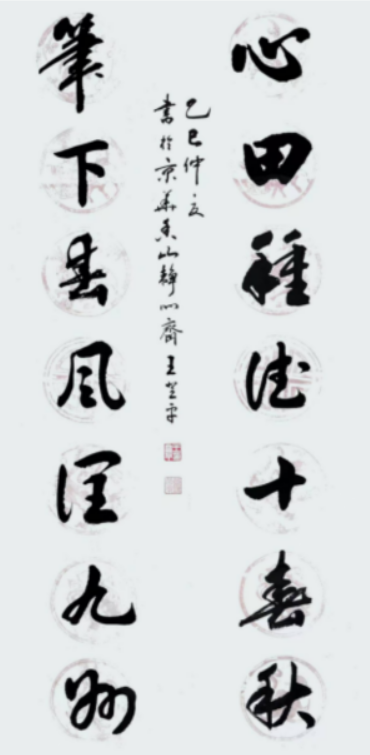 心田種德十春秋
筆下春風潤九州
乙巳仲夏
書於京華香山靜心齋王登平